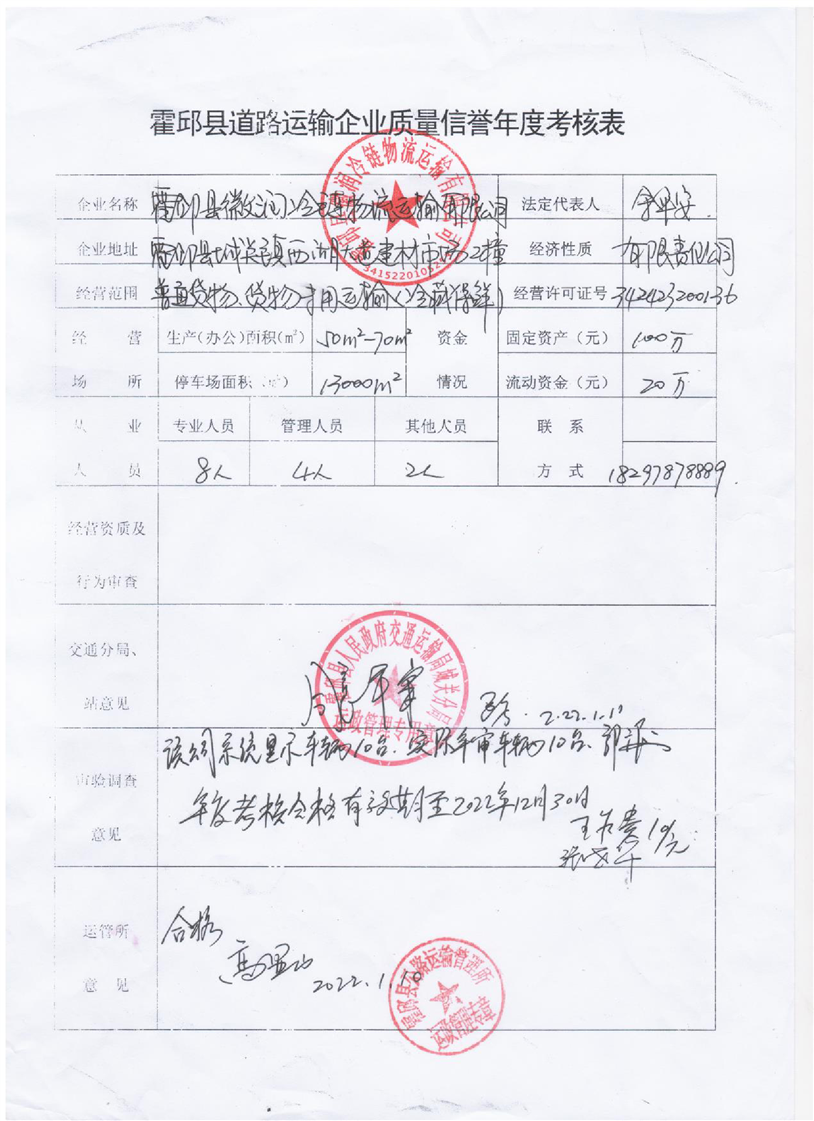 霍邱县道路运输企业质量信誉年度考核表
企业名称 霍邱县徽润冷链物流运输有限公司 法定代表人
企业地址 霍邱县城关镇西湖大道建材市场2幢 经济性质 有限责任公司
经营范围 普通货物、货物专用运输(冷藏保鲜) 经营许可证号 342423200136
经营 生产(办公)面积(m²) 50m²-70m² 资金 固定资产(元) 100万
场所 停车场面积(㎡) 13000m² 情况 流动资金(元) 20万
从业 专业人员 管理人员 其他人员 联系
人员 8人 4人 2人 方式 18297878889
经营资质及
行为审查
交通分局、
站意见
霍邱县人民政府交通运输局城关分局
运政管理专用章
2022.1.11
该公司系统显示车辆10台、实际年审车辆10台
审验调查
年度考核合格有效期至2022年12月30日
意见
运管所 合格
意见 2022.1.10
霍邱县道路运输管理所
运政管理专用章